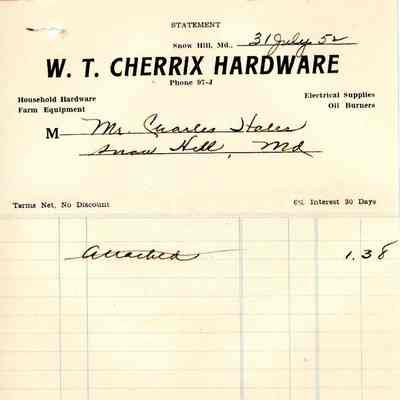 STATEMENT
Snow Hill, Md., 31 July 52
W. T. CHERRIX HARDWARE
Phone 97-J
Household Hardware Electrical Supplies
Farm Equipment Oil Burners
M Mr. Charles Hales
Snow Hill, Md
Terms Net, No Discount 6% Interest 30 Days
Attached 1.38